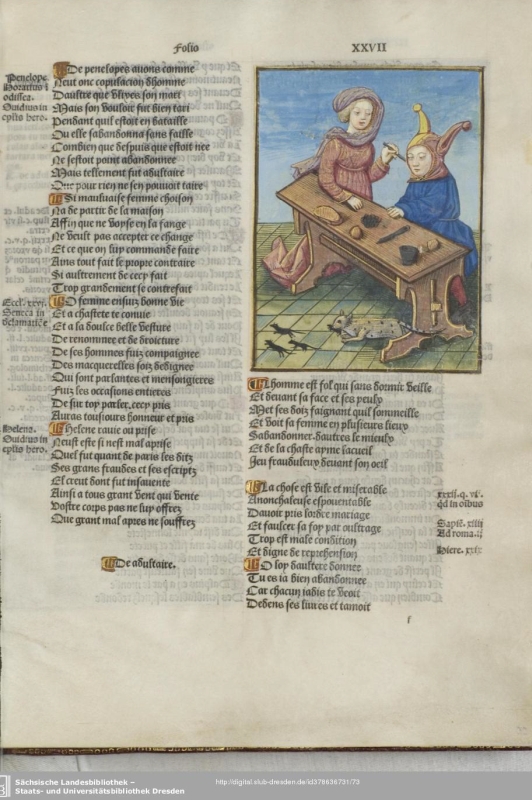 Folio
XXVII
Penelope
Horatius i
odissea.
Ouidius in
episto hero.
De penelopes auions comme
Neut onc copulacion dhomme
Daultre que vlixes son mari
Mais son vouloir fut bien tari
Pendant quil estoit en bataille
Ou elle sabandonna sans faille
Combien que despuis que estoit nee
Ne sestoit point abandonnee
Mais tellement fut adultaire
Que pour rien ne sen pouoit taire
Si mauluaise femme choison
Na de partir de la maison
Affin que ne voyse en la fange
Ne veult pas accepter ce change
Et ce que on luy commande faire
Ains tout fait le propre contraire
Si aultrement de cecy fait
Trop grandement se contrefait
Eccl. xxvi.
Seneca in
declamatiõe
O femme ensuiz bonne vie
Et a chastete te conuie
Et a la doulce belle vesture
De renommee et de droicture
De ses hommes fuiz compaignee
Des macquerelles soiz desdignee
Qui sont parlantes et mensongieres
Fuiz les occasions entieres
De sur top parler, cecy pris
Auras tousiours honneur et pris
Helena.
Ouidius in
episto hero.
Helene rauie ou prise
Neust este si nest mal aprise
Quel fut quant de paris les ditz
Ses grans fraudes et ses escriptz
El creut dont fut insauente
Ainsi a tous grant vent qui vente
Vostre corps pas ne luy offrez
Que grant mal apres ne souffrez
De adultaire.
Lhomme est fol qui sans dormir veille
Et deuant sa face et ses yeulx
Met ses doiz faignant quil sommeille
Et voit sa femme en plusieurs lieux
Sabandonner. dautres le mieulx
Et de la chaste ayme lacueil
Jeu frauduleux deuant son oeil
La chose est vile et miserable
Anonchaleuse espouentable
Dauoir pris lordre mariage
Et faulcer sa foy par oultrage
Trop est male condition
Et digne de reprehension
xxxij. q. vi.
qd in oibus
Sapiẽ. xiiij
Ad roma. ij
Hiere. xxix
O loy daultere donnee
Tu es ia bien abandonnee
Car chacun iadis te veoit
Dedens ses liures et tamoit
f
Sächsische Landesbibliothek –
Staats- und Universitätsbibliothek Dresden
http://digital.slub-dresden.de/id378636731/73